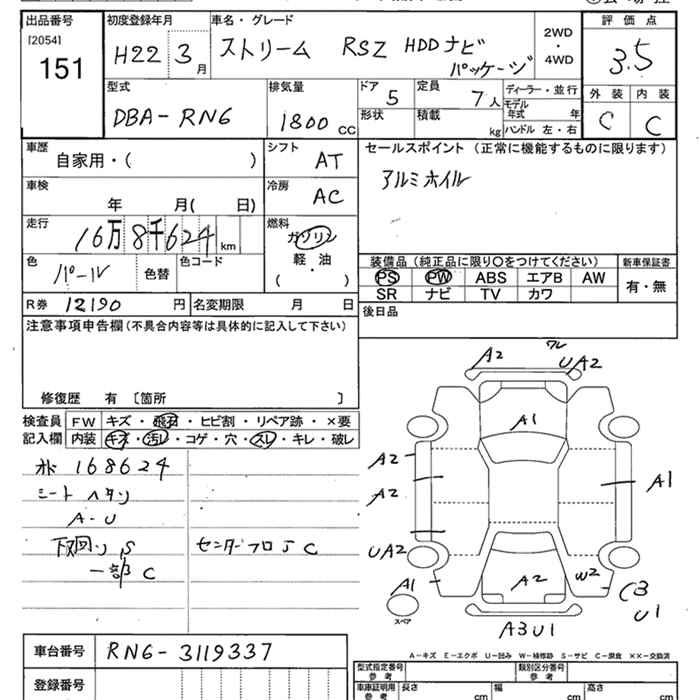 出品番号
[2054]
151
初度登録年月
H22 3月
車名・グレード
ストリーム RSZ HDDナビ
パッケージ
2WD
・
4WD
評価点
3.5
外装 内装
C C
型式
DBA-RN6
排気量
1800 CC
ドア 5
形状
定員 7人
積載 kg
ディーラー・並行
モデル
年式 年
ハンドル 左・右
車歴
自家用・( )
シフト
AT
車検
年 月( 日)
冷房
AC
走行
16万8千624 km
燃料
ガソリン
・
軽油
( )
色
パール
色替
色コード
R券 12190 円
名変期限 月 日
セールスポイント (正常に機能するものに限ります)
アルミホイル
装備品 (純正品に限り○をつけてください)
新車保証書
PS PW ABS エアB AW
SR ナビ TV カワ
有・無
後日品
注意事項申告欄 (不具合内容等は具体的に記入して下さい)
修復歴 有 〔箇所 〕
検査員
記入欄
FW キズ・飛石・ヒビ割・リペア跡・×要
内装 キズ・汚レ・コゲ・穴・スレ・キレ・破レ
168624
シート ヘタリ
A-U
下回り S
一部 C
センターフロJ C
A2
ワレ
UA2
A1
A2
A2
A1
UA2
A1
スペア
A2
W2
C3
U1
A3U1
A-キズ E-エクボ U-凹み W-補修跡 S-サビ C-腐食 ××-交換済
車台番号
RN6-3119337
登録番号
型式指定番号
参考
類別区分番号
参考
車庫証明用
参考
長さ cm
幅 cm
高さ cm